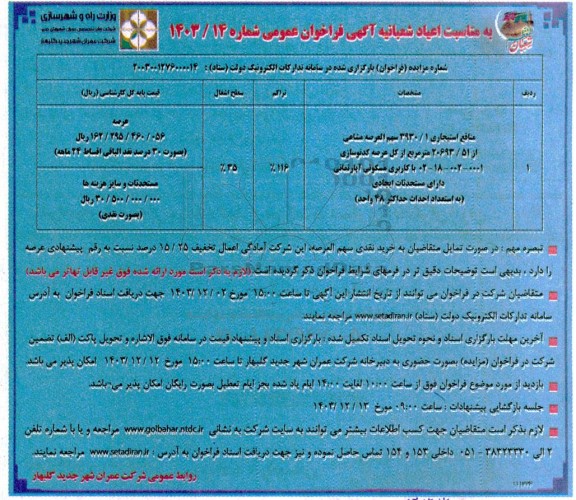 وزارت راه و شهرسازی
شرکت عمران شهر جدید گلبهار
به مناسبت اعیاد شعبانیه آگهی فراخوان عمومی شماره ۱۴ / ۱۴۰۳
شماره مزایده (فراخوان) بارگزاری شده در سامانه تدارکات الکترونیک دولت (ستاد) : ۲۰۰۳۰۰۱۲۷۶۰۰۰۰۱۴
ردیف
مشخصات
تراکم
سطح اشغال
قیمت پایه کل کارشناسی (ریال)
۱
منافع استیجاری ۱ / ۳۹۳۰ سهم العرصه مشاعی
از ۵۱ / ۲۰۶۹۳ مترمربع از کل عرصه کدنوسازی
۰۰۰۱-۰۰۲-۱۸-۰۲ با کاربری مسکونی آپارتمانی
دارای مستحدثات ایجادی
(به استعداد احداث حداکثر ۲۸ واحد)
٪۱۱۶
٪۳۵
عرصه
۰۵۶ / ۴۶۰ / ۲۹۵ / ۱۶۲ ریال
(بصورت ۳۰ درصد نقد الباقی اقساط ۲۴ ماهه)
مستحدثات و سایر هزینه ها
۰۰۰ / ۰۰۰ / ۵۰۰ / ۳۰ ریال
(بصورت نقدی)
تبصره مهم : در صورت تمایل متقاضیان به خرید نقدی سهم العرصه، این شرکت آمادگی اعمال تخفیف ۲۵ / ۱۵ درصد نسبت به رقم پیشنهادی عرصه
را دارد ، بدیهی است توضیحات دقیق تر در فرمهای شرایط فراخوان ذکر گردیده است (لازم به ذکر است مورد ارائه شده فوق غیر قابل تهاتر می باشد)
متقاضیان شرکت در فراخوان می توانند از تاریخ انتشار این آگهی تا ساعت ۱۵:۰۰ مورخ ۰۲ / ۱۲ /۱۴۰۳ جهت دریافت اسناد فراخوان به آدرس
سامانه تدارکات الکترونیک دولت (ستاد) www.setadiran.ir مراجعه نمایند.
آخرین مهلت بارگزاری اسناد و نحوه تحویل اسناد تکمیل شده : بارگزاری اسناد و پیشنهاد قیمت در سامانه فوق الاشاره و تحویل پاکت (الف) تضمین
شرکت در فراخوان (مزایده) بصورت حضوری به دبیرخانه شرکت عمران شهر جدید گلبهار تا ساعت ۱۵:۰۰ مورخ ۱۲ / ۱۲ /۱۴۰۳ امکان پذیر می باشد.
بازدید از مورد موضوع فراخوان فوق از ساعت ۱۰:۰۰ لغایت ۱۴:۰۰ ایام یاد شده بجز ایام تعطیل بصورت رایگان امکان پذیر می باشد.
جلسه بازگشایی پیشنهادات : ساعت ۰۹:۰۰ مورخ ۱۳ / ۱۲ /۱۴۰۳
لازم بذکر است متقاضیان جهت کسب اطلاعات بیشتر می توانند به سایت شرکت به نشانی www.golbahar.ntdc.ir مراجعه و یا با شماره تلفن
۲ الی ۳۸۳۲۳۳۳۰ - ۰۵۱ داخلی ۱۵۳ و ۱۵۴ تماس حاصل نموده و نیز جهت دریافت اسناد فراخوان به آدرس : www.setadiran.ir مراجعه نمایند.
روابط عمومی شرکت عمران شهر جدید گلبهار